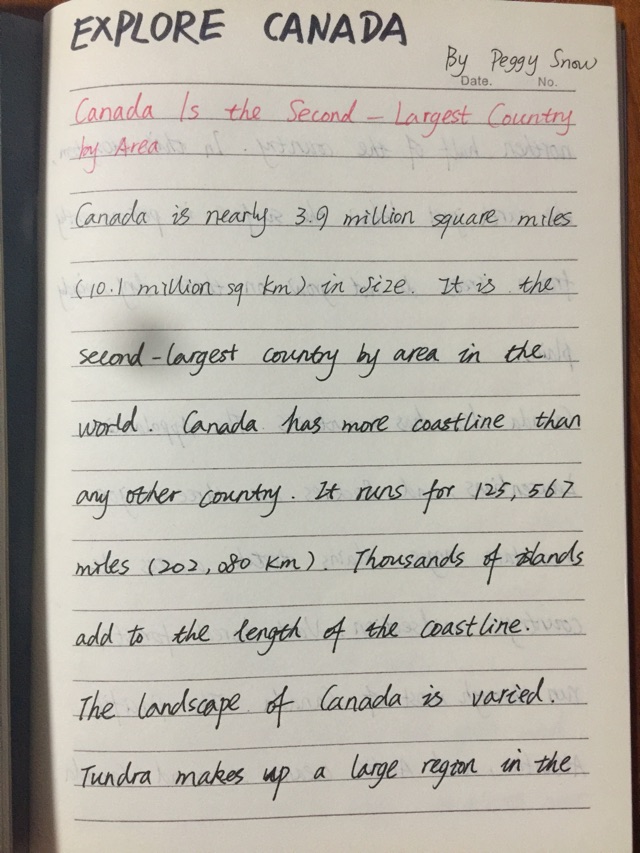 EXPLORE CANADA
By Peggy Snow
Date. No.
Canada Is the Second-Largest Country
by Area
Canada is nearly 3.9 million square miles
(10.1 million sq km) in size. It is the
second-largest country by area in the
world. Canada has more coastline than
any other country. It runs for 125,567
miles (202,080 km). Thousands of islands
add to the length of the coastline.
The landscape of Canada is varied.
Tundra makes up a large region in the